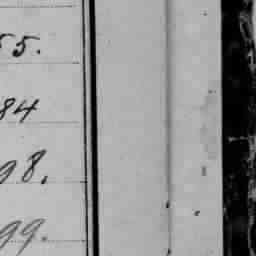 55.
84
98.
99.